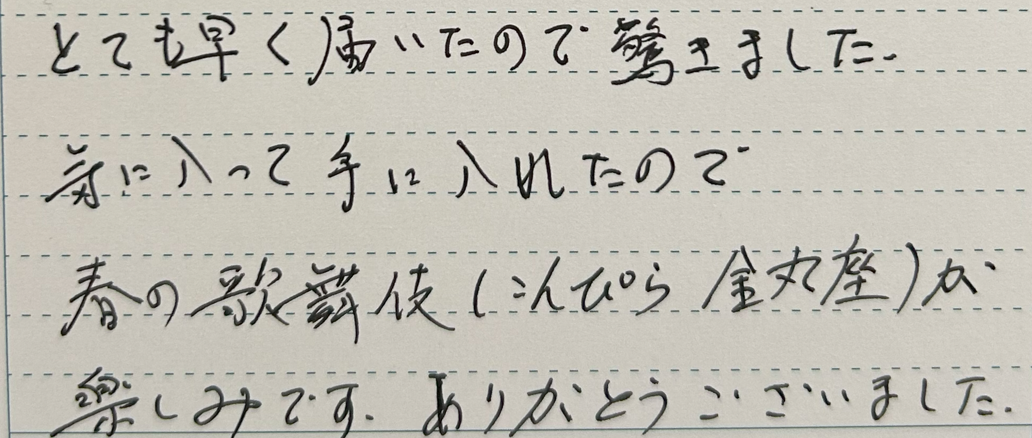 とても早く届いたので驚きました.
気に入って手に入れたので
春の歌舞伎(こんぴら 金丸座)が
楽しみです. ありがとうございました.